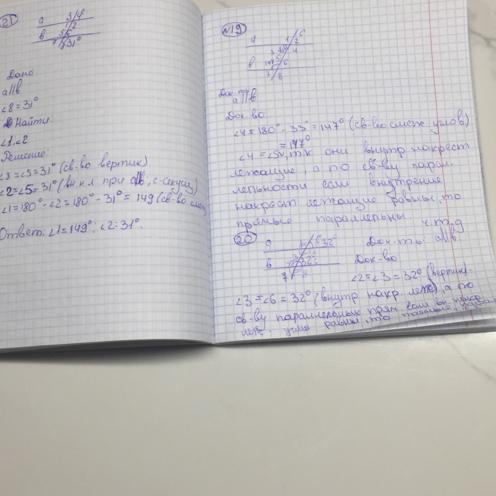 21
a
b
31°
Дано
a||b
∠8=31°
Найти
∠1,∠2
Решение
=∠5=31° (св-во вертик)
∠2=∠5=31° (вн н.л при a||b, с-секущ)
∠1=180°-∠2=180°-31°=149 (св-во смеж
Ответ: ∠1=149°, ∠2=31°.
№19
a
b
a||b
Док-во
∠4=180°-33°=147° (св-во смеж углов)
=147°
∠4=∠5, т.к они внутр накрест
лежащие, а по св-ву парал
лельности если внутрение
накрест лежащие равны, то
прямые параллельны
ч.т.д
20
a
32°
b
32°
Док-ть: a||b
Док-во
∠2=∠3=32° (вертик)
∠3=∠6=32° (внутр накр. леж), а по
св-ву параллельных прям если вн накр
леж. углы равны, то